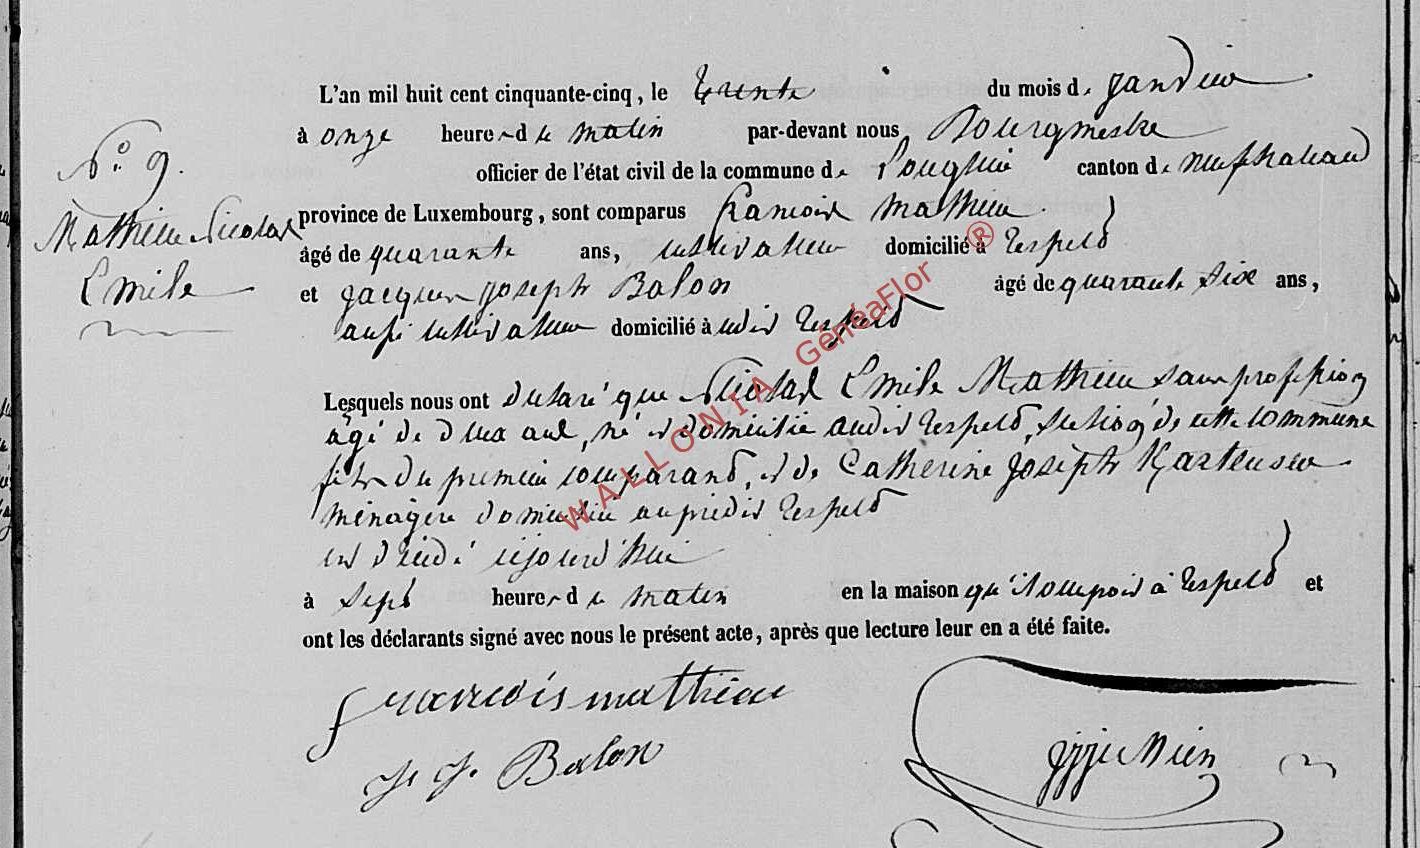 L'an mil huit cent cinquante-cinq, le trente du mois de janvier
à onze heures du matin par-devant nous Bourgmestre
officier de l'état civil de la commune de Longlier canton de neufchateau
N.° 9.
Mathieu Nicolas
Emile
province de Luxembourg, sont comparus françois mathieu
âgé de quarante ans, cultivateur domicilié à Respelt
et jacques joseph Balon âgé de quarante six ans,
aussi cultivateur domicilié à udit Respelt
Lesquels nous ont declaré que Nicolas Emile Mathieu sans profession
âgé de deux ans, né et domicilié audit Respelt, section de cette commune
fils du premier comparant, et de Catherine joseph
ménagère domiciliée au predit Respelt
est decedé cejourd'hui
à sept heures du matin en la maison qu'il occupoit à Respelt et
ont les déclarants signé avec nous le présent acte, après que lecture leur en a été faite.
francois mathieu
J. J. Balon
WALLONIA GénéaFlor ®